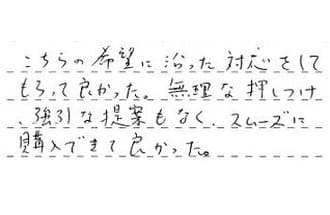 こちらの希望に沿った対応をして
もらって良かった。無理な押しつけ
、強引な提案もなく、スムーズに
購入できて良かった。